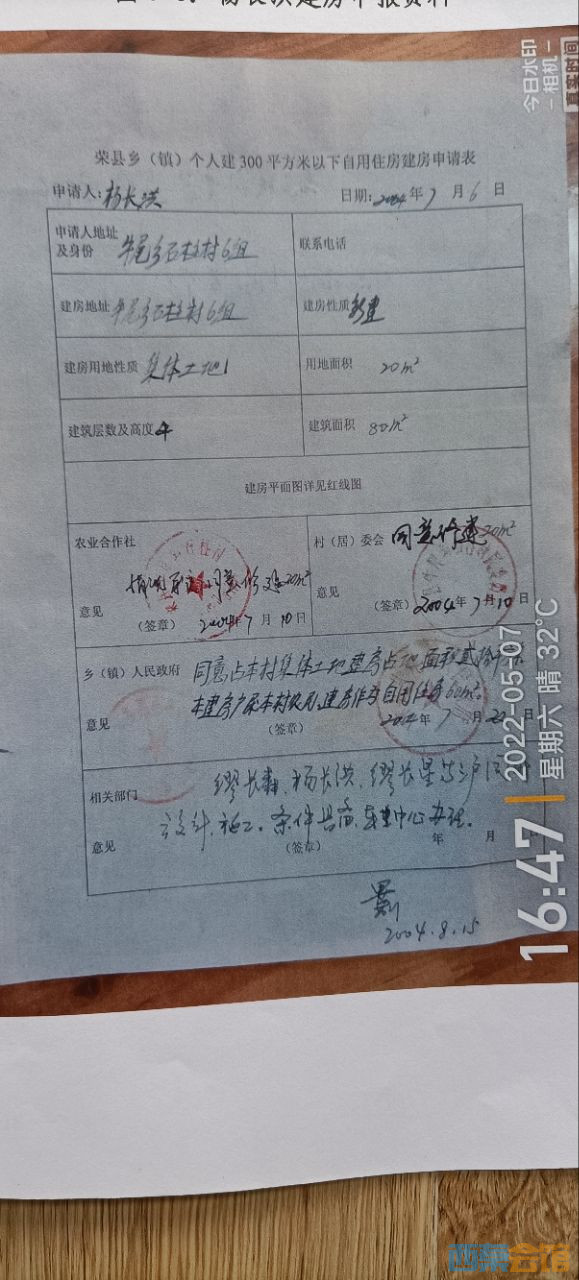 杨长洪建房申报资料
荣县乡（镇）个人建300平方米以下自用住房建房申请表
申请人：杨长洪 日期：2004年7月6日
申请人地址及身份 牛尾乡石柱村6组 联系电话
建房地址 牛尾乡石柱村6组 建房性质 新建
建房用地性质 集体土地 用地面积 20m²
建筑层数及高度 4 建筑面积 80m²
建房平面图详见红线图
农业合作社 村（居）委会 同意修建20m²
同意修建20m²
意见 意见
（签章） 2004年7月10日 （签章） 2004年7月10日
乡（镇）人民政府 同意占本村集体土地建房占地面积贰拾
本建房户系本村农户，建房作为自用住房
意见 （签章） 2004年7月22日
相关部门 缪长森、杨长洪、缪长星
设计、施工。条件具备，中心办理。
意见 （签章） 年 月
2004.8.15
今日水印
-相机-
真实时间
16:47
2022-05-07
星期六 晴 32℃
西秦会馆